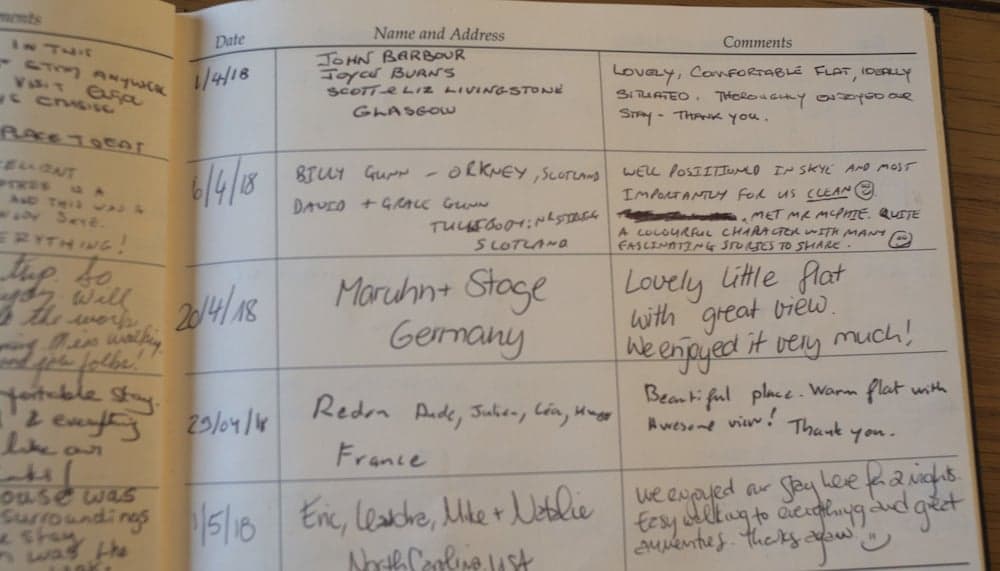 ments
IN THIS
STAY ANYWERE
VISIT
PLACE TO EAT
AND THIS WAS A
SKYE.
ERYTHING!
trip. So
will
the work
walking
folks!
fortable stay.
& everything
like our
ouse was
surroundings
e stay
was the
Date Name and Address Comments
1/4/18 JOHN BARBOUR
JOYCE BURNS
SCOTT & LIZ LIVINGSTONE
GLASGOW
LOVELY, COMFORTABLE FLAT, IDEALLY
SITUATED. THOROUGHLY ENJOYED OUR
STAY - THANK YOU.
6/4/18 BILLY GUNN - ORKNEY, SCOTLAND
DAVID + GRACE GUNN
SCOTLAND
WELL POSITIIONED IN SKYE AND MOST
IMPORTANTLY FOR US CLEAN
. MET MR MCPHIE. QUITE
A COLOURFUL CHARACTER WITH MANY
FASCINATING STORIES TO SHARE.
20/4/18 Maruhn + Stage
Germany
Lovely little flat
with great view.
We enjoyed it very much!
29/04/18 Redon Aude, Julien, Léa, Hugo
France
Beautiful place. Warm flat with
Awesome view! Thank you.
1/5/18 Eric, Mike + Natalie
North Carolina, USA
We enjoyed our stay here for 2 nights.
Easy walking to everything and great
amenities. Thanks again